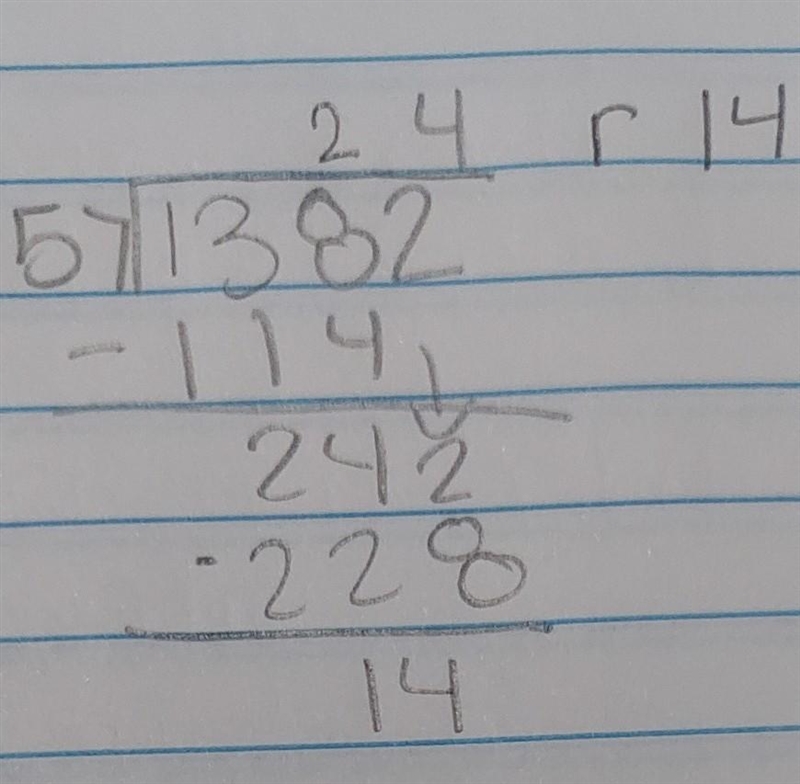 24 r 14
57)1382
-114↓
242
-228
14